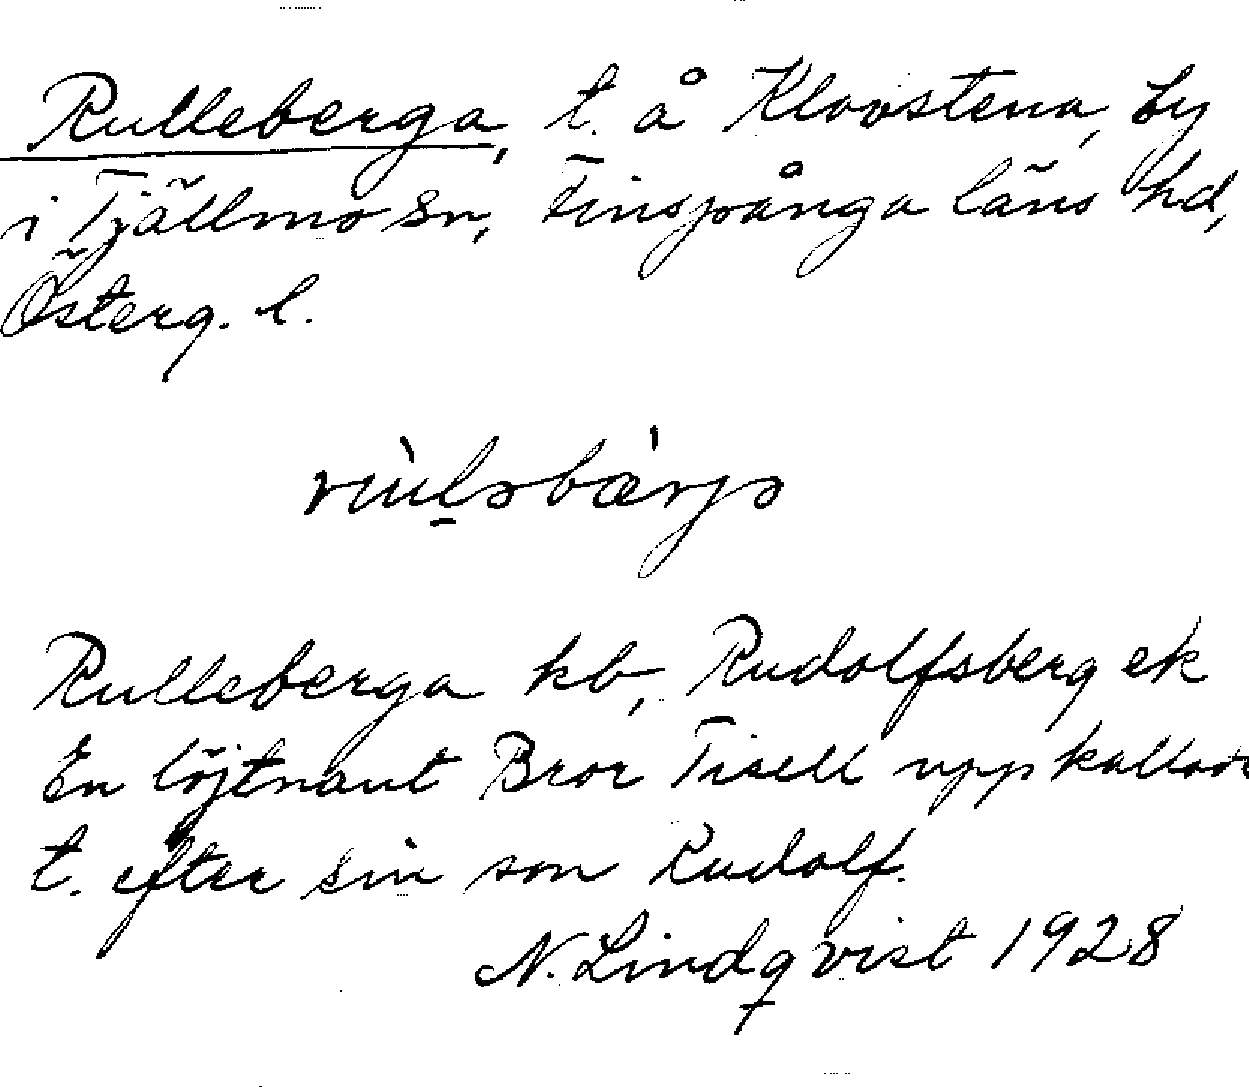 Rulleberga, t. å Klovstena, by
i Tjällmo sn, Finspånga läns hd,
Österg. l.
Rulleberga kb, Rudolfsberg ek
En löjtnant Bror Tisell uppkallade
t. efter sin son Rudolf.
N. Lindqvist 1928